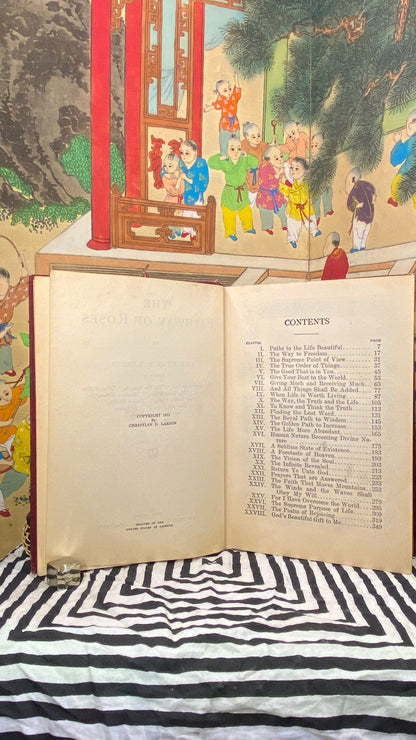 COPYRIGHT
CHRISTIAN D. LARSON
PRINTED IN THE
UNITED STATES OF AMERICA
CONTENTS
CHAPTER PAGE
I. Paths to the Life Beautiful 7
II. The Way to Freedom 17
III. The Supreme Point of View 31
IV. The True Order of Things 37
V. The Good That is in You
VI. Give Your Best to the World
VII. Giving Much and Receiving Much 63
VIII. And All Things Shall Be Added 77
IX. When Life is Worth Living 87
X. The Way, the Truth and the Life 103
XI. To Know and Think the Truth 113
XII. Finding the Lost Word 131
XIII. The Royal Path to Wisdom 145
XIV. The Golden Path to Increase 153
XV. The Life More Abundant
XVI. Human Nature Becoming Divine Nature
XVII. A Sublime State of Existence 175
XVIII. A Foretaste of Heaven 183
XIX. The Vision of the Soul
XX. The Infinite Revealed 203
XXI. Return Ye Unto God
XXII. Prayers That are Answered 233
XXIII. The Faith That Moves Mountains 253
XXIV. The Winds and the Waves Shall
Obey My Will
XXV. For I Have Overcome the World 295
XXVI. The Supreme Purpose of Life
XXVII. The Psalm of Rejoicing 319
XXVIII. God's Beautiful Gift to Me 349